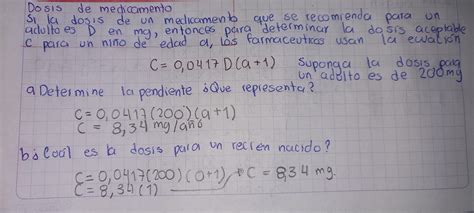 Dosis de medicamento
Si la dosis de un medicamento que se recomienda para un
adulto es D en mg, entonces para determinar la dosis aceptable
C para un niño de edad a, los farmaceuticos usan la ecuación
C = 0,0417 D (a+1) Suponga la dosis para
un adulto es de 200mg
a Determine la pendiente ¿Que representa?
C = 0,0417(200)(a+1)
C = 8,34 mg/año
b¿Cuál es la dosis para un recien nacido?
C = 0,0417(200)(0+1) C = 8,34 mg.
C = 8,34 (1)